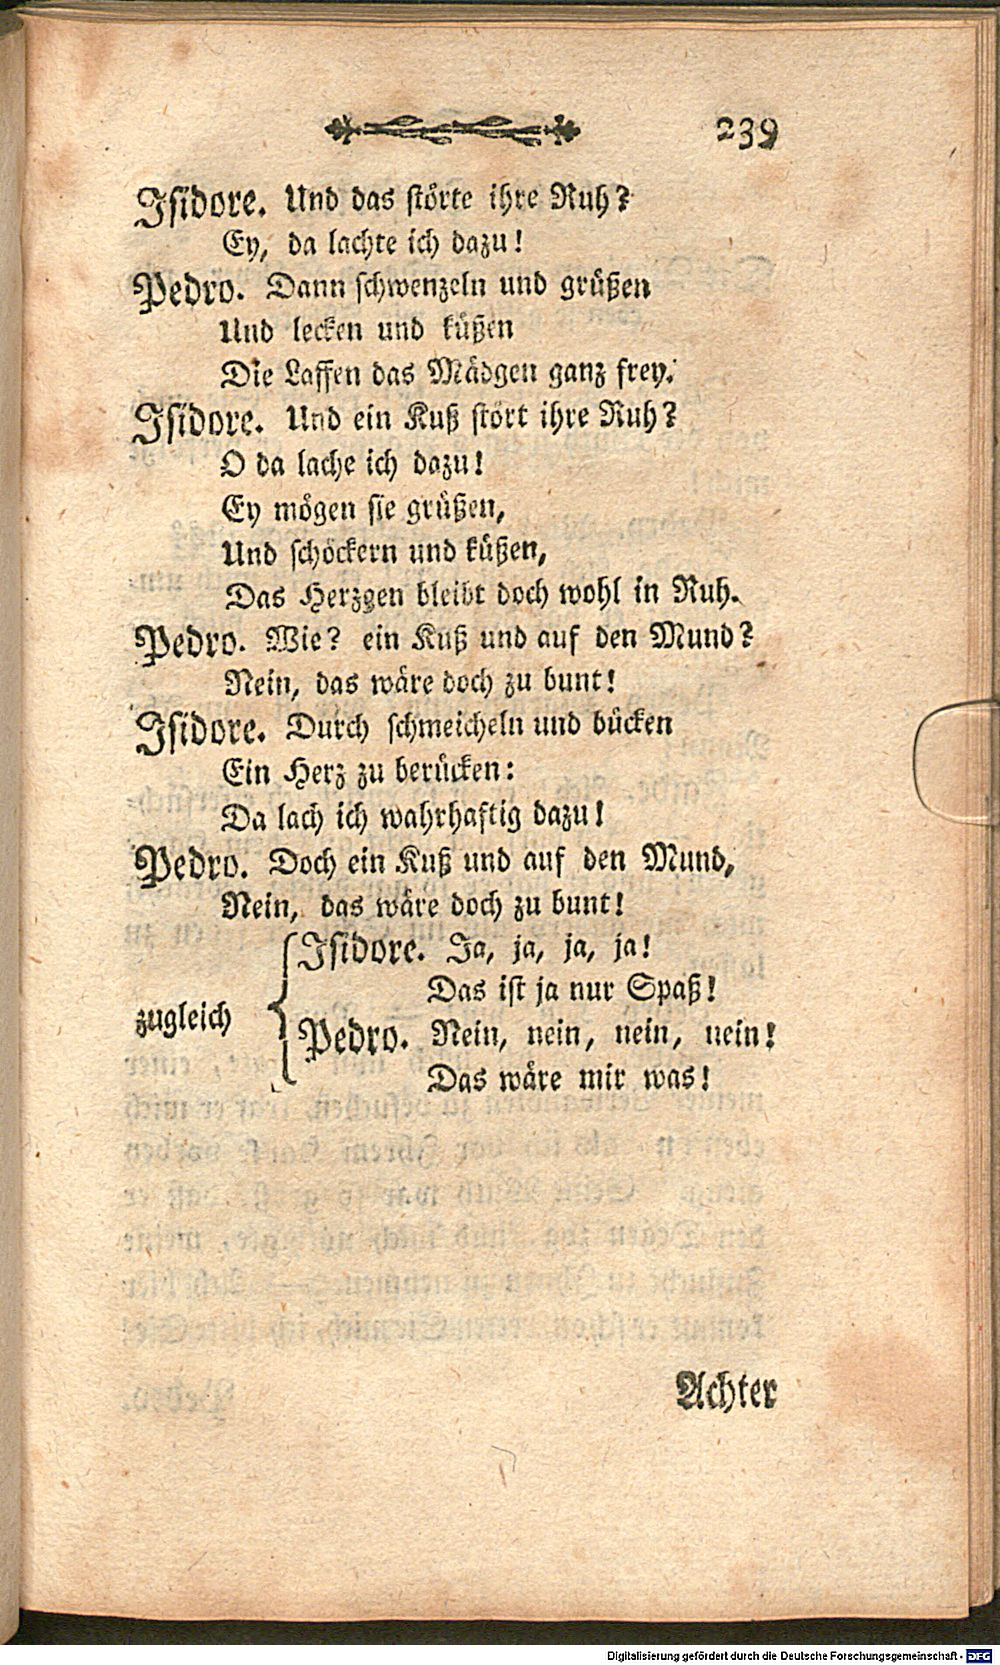 239
Isidore. Und das störte ihre Ruh?
Ey, da lachte ich dazu!
Pedro. Dann schwenzeln und grüßen
Und lecken und küßen
Die Laffen das Mädgen ganz frey.
Isidore. Und ein Kuß stört ihre Ruh?
O da lache ich dazu!
Ey mögen sie grüßen,
Und schöckern und küßen,
Das Herzgen bleibt doch wohl in Ruh.
Pedro. Wie? ein Kuß und auf den Mund?
Nein, das wäre doch zu bunt!
Isidore. Durch schmeicheln und bücken
Ein Herz zu berücken:
Da lach ich wahrhaftig dazu!
Pedro. Doch ein Kuß und auf den Mund,
Nein, das wäre doch zu bunt!
Isidore. Ja, ja, ja, ja!
Das ist ja nur Spaß!
zugleich
Pedro. Nein, nein, nein, nein!
Das wäre mir was!
Achter
Digitalisierung gefördert durch die Deutsche Forschungsgemeinschaft - DFG